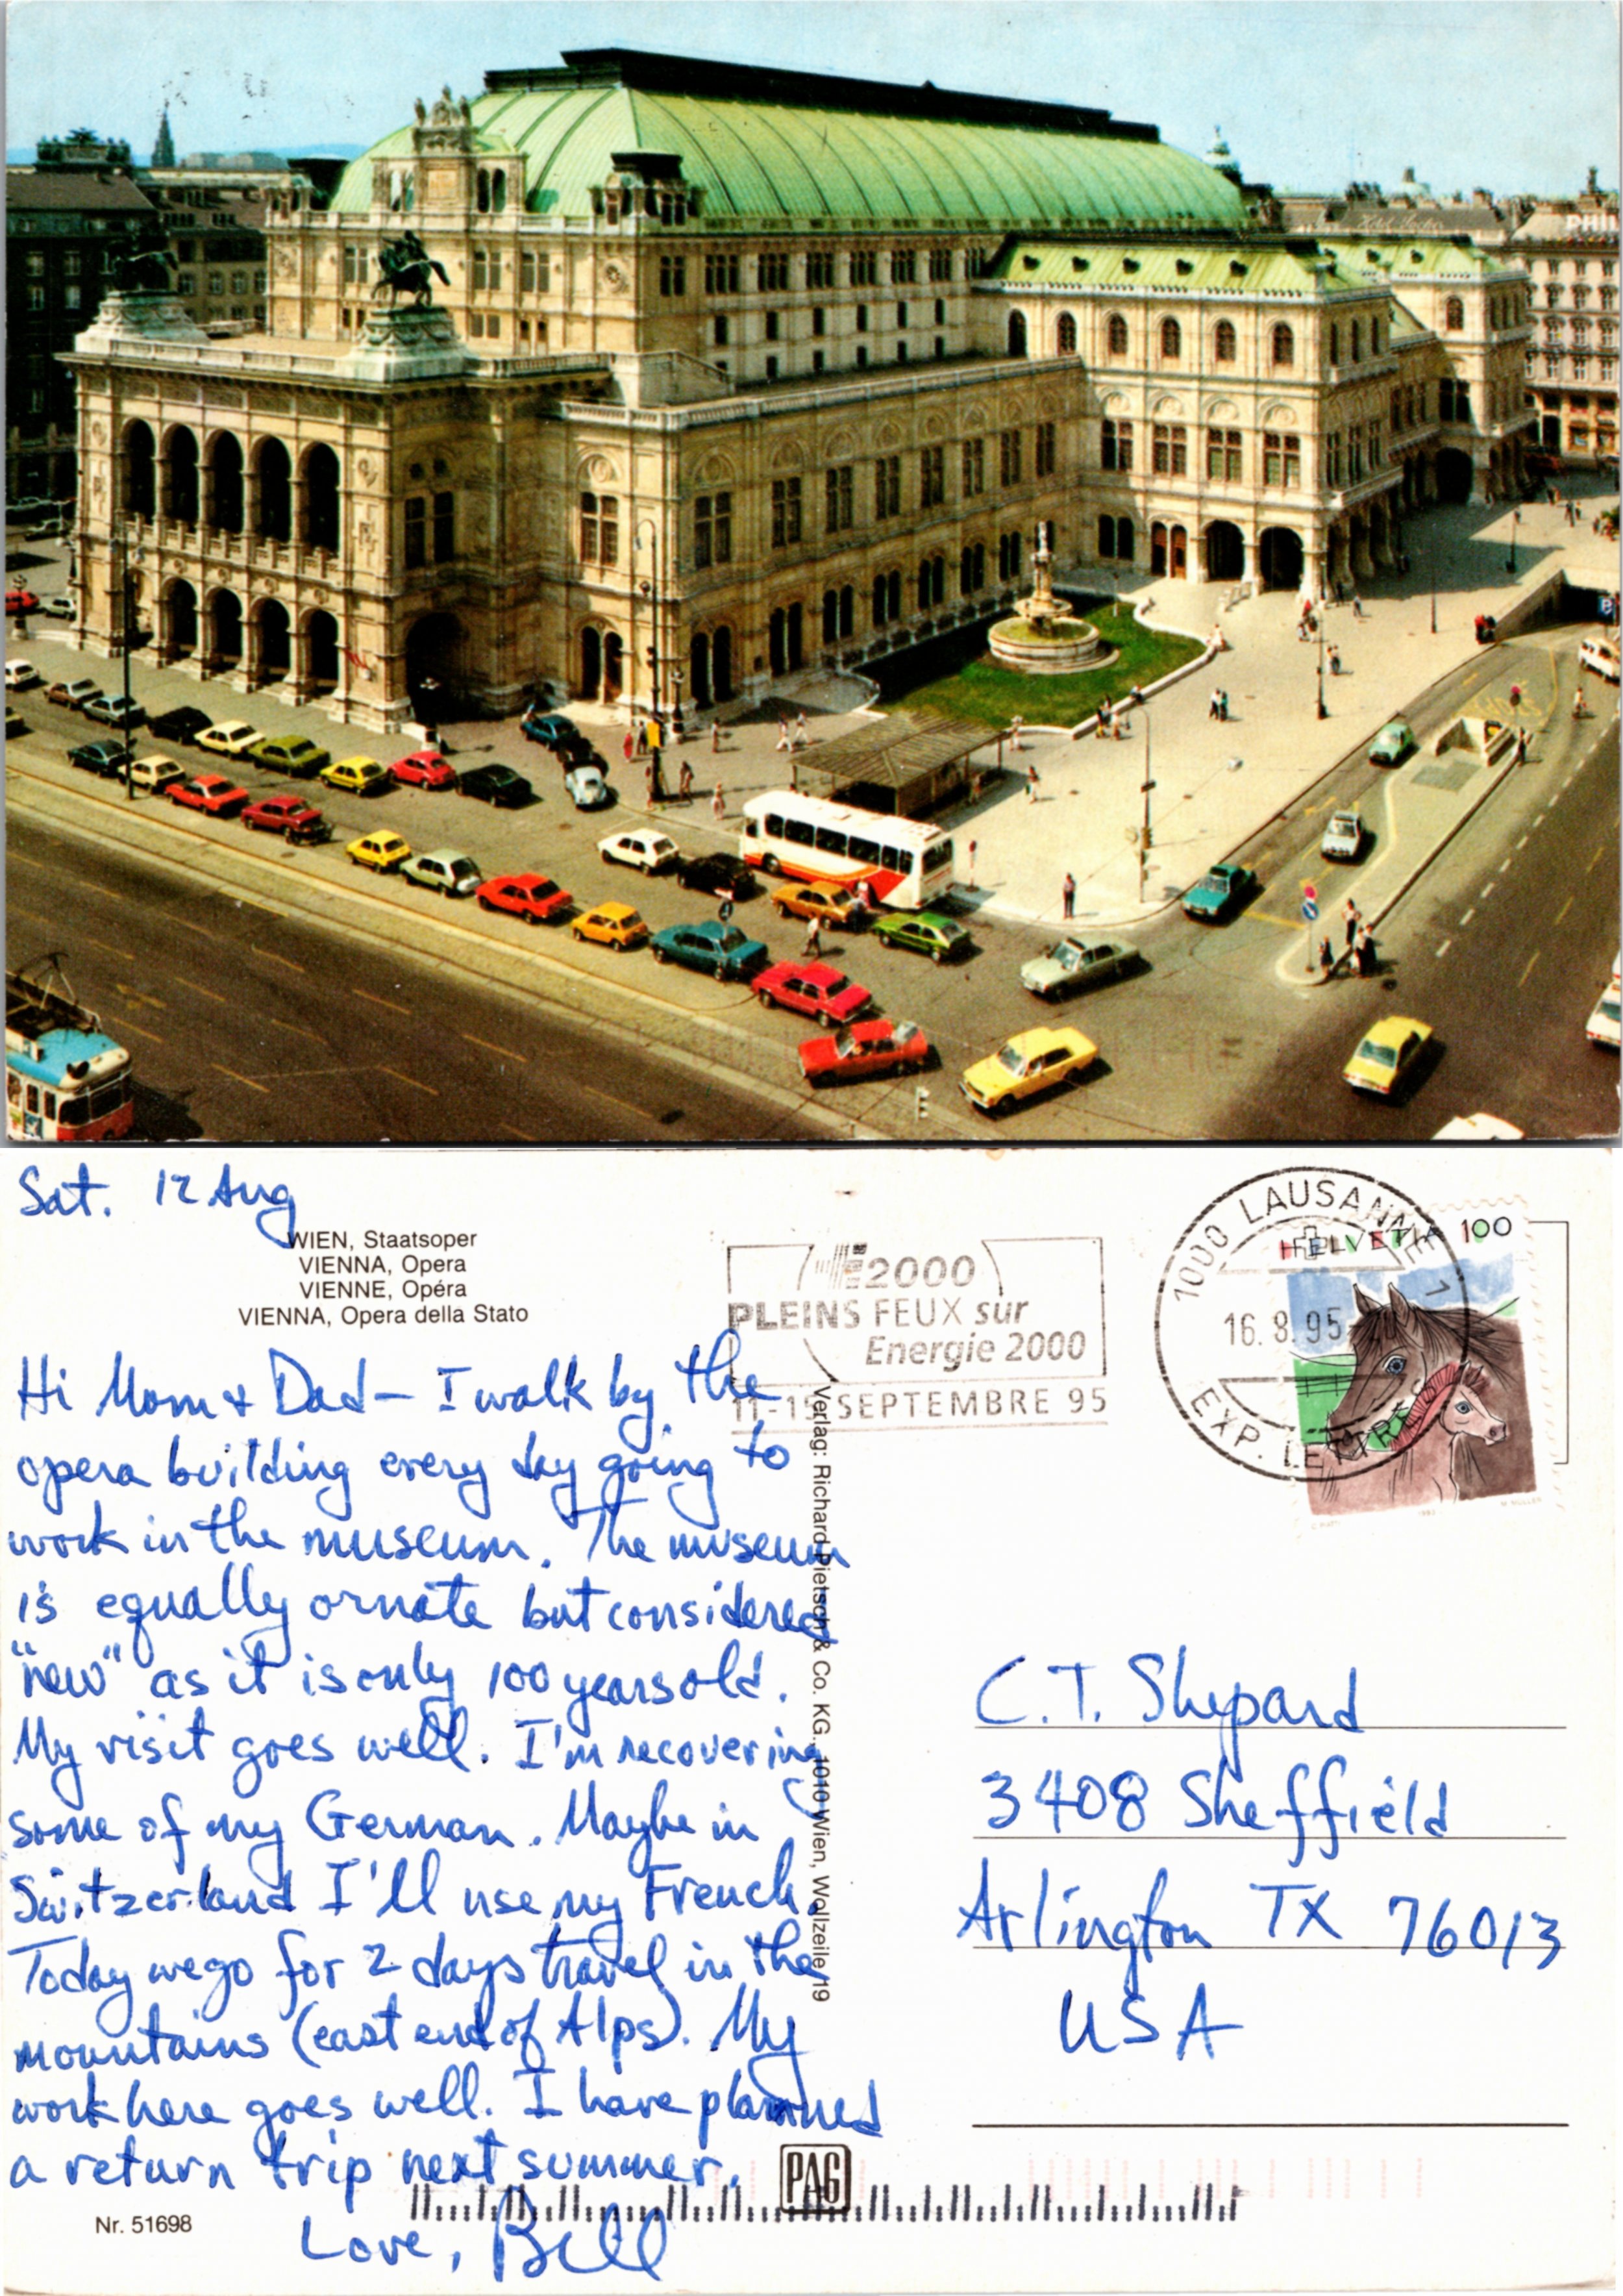 PHIL
Sat. 12 Aug
WIEN, Staatsoper
VIENNA, Opera
VIENNE, Opéra
VIENNA, Opera della Stato
Hi Mom & Dad — I walk by the
opera building every day going to
work in the museum. The museum
is equally ornate but considered
"new" as it is only 100 years old.
My visit goes well. I'm recovering
some of my German. Maybe in
Switzerland I'll use my French.
Today we go for 2 days travel in the
mountains (east end of Alps). My
work here goes well. I have planned
a return trip next summer.
Love, Bill
Nr. 51698
Verlag: Richard Pietsch & Co. KG., 1010 Wien, Wollzeile 19
PAG
E2000
PLEINS FEUX sur
Energie 2000
11-15 SEPTEMBRE 95
1000 LAUSANNE 1
16.8.95
EXP. LETTRES
HELVETIA 100
C.T. Shepard
3408 Sheffield
Arlington TX 76013
USA